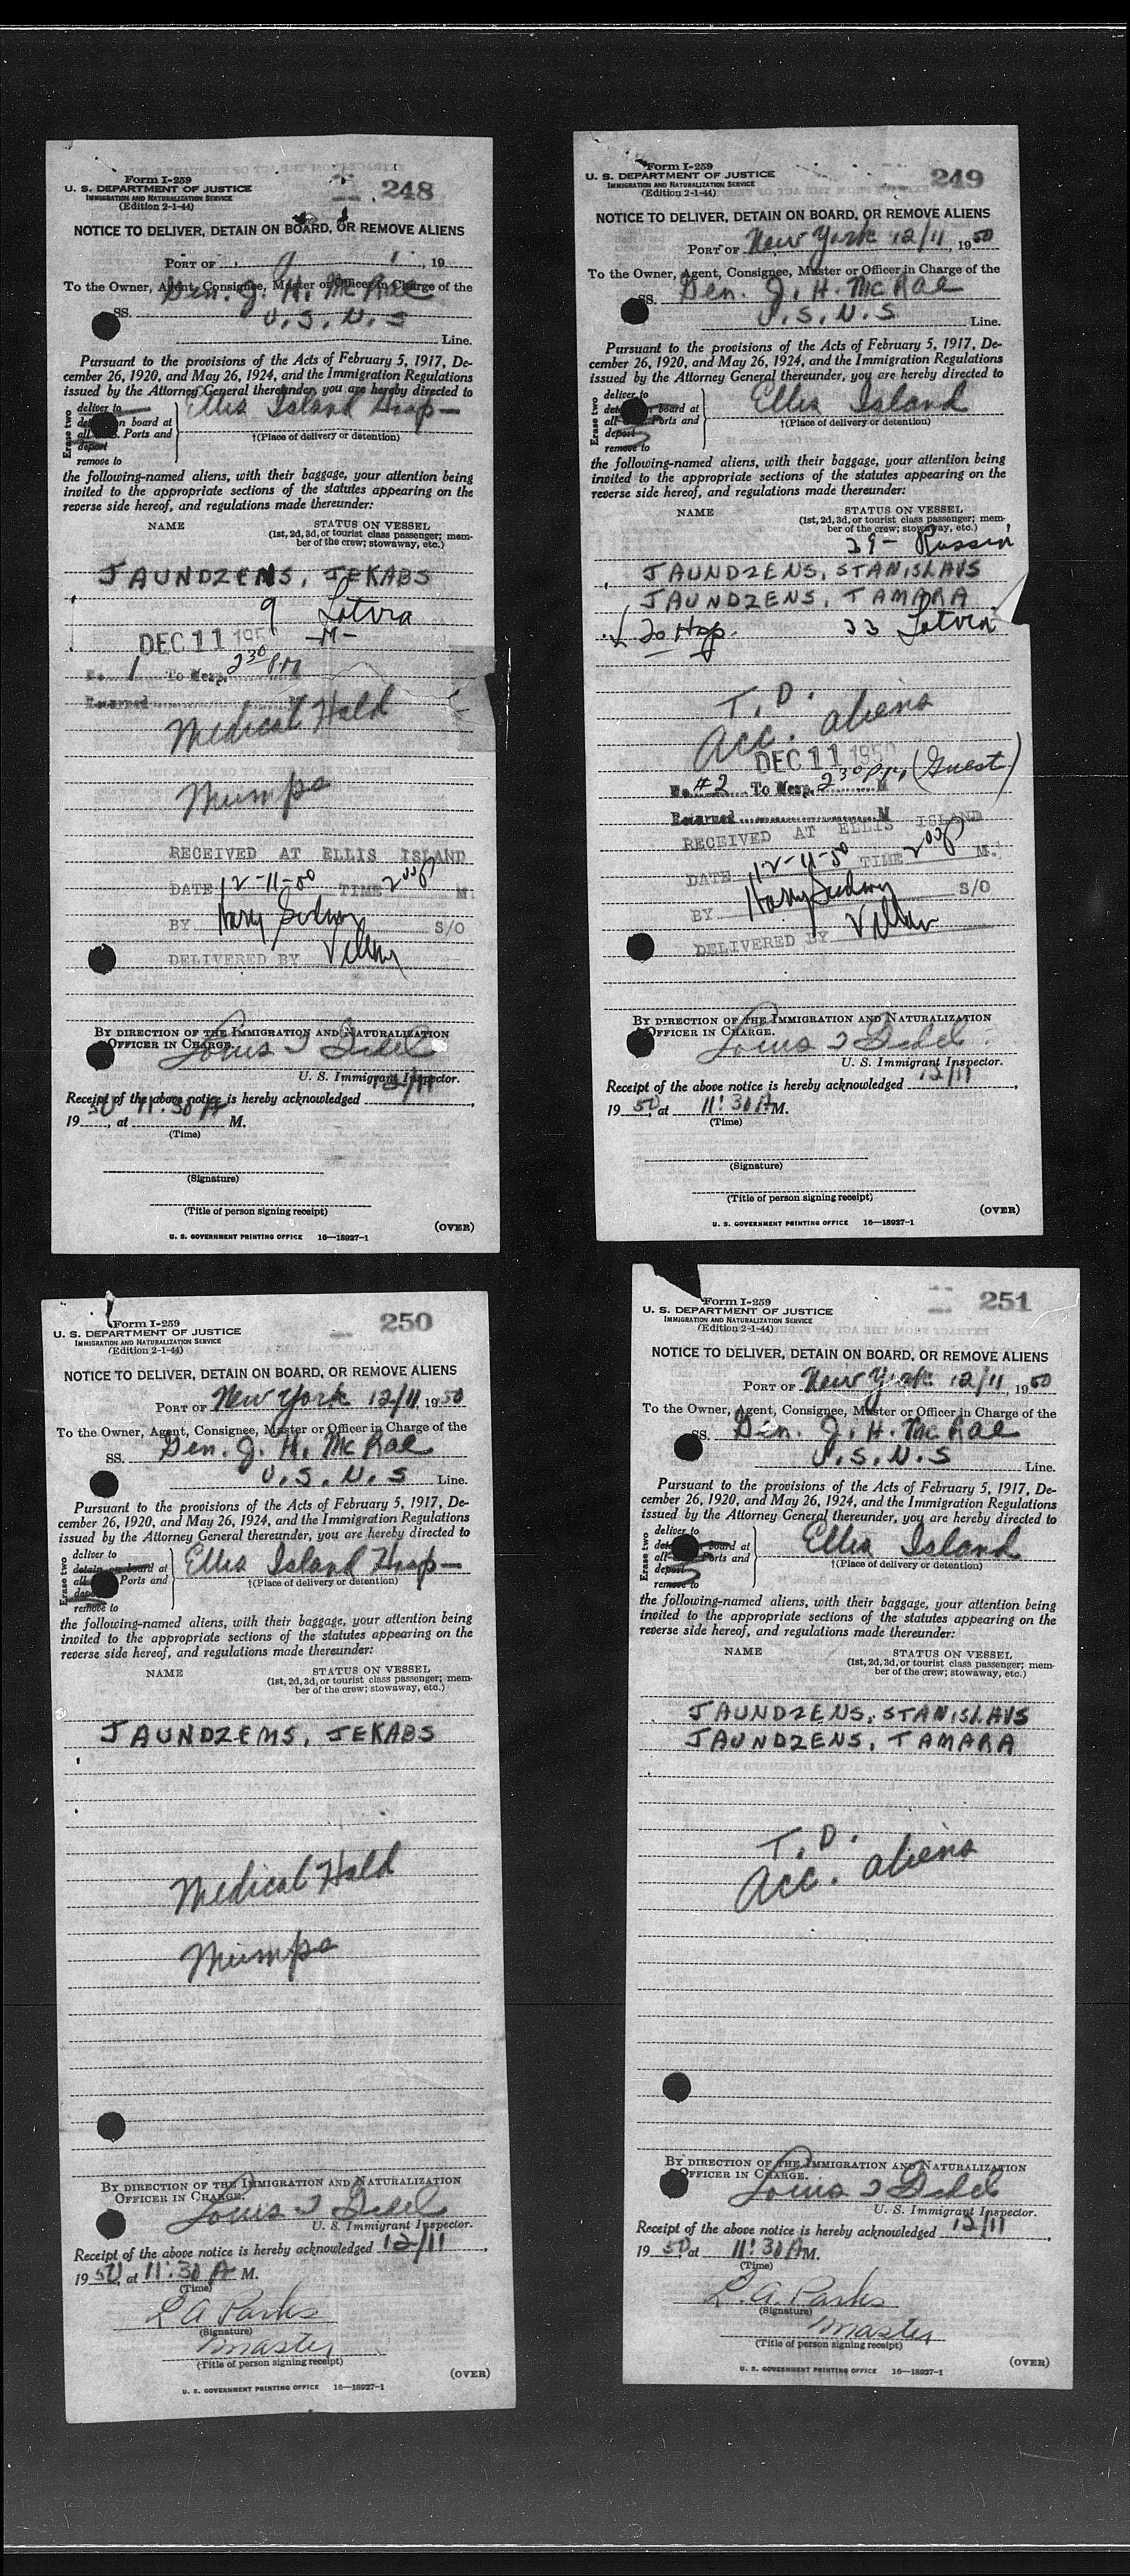 Form I-259
U. S. DEPARTMENT OF JUSTICE
IMMIGRATION AND NATURALIZATION SERVICE
(Edition 2-1-44)
248
NOTICE TO DELIVER, DETAIN ON BOARD, OR REMOVE ALIENS
PORT OF , 19
To the Owner, Agent, Consignee, Master or Officer in Charge of the
SS. Gen. J. H. McRae
U.S.N.S Line.
Pursuant to the provisions of the Acts of February 5, 1917, De-
cember 26, 1920, and May 26, 1924, and the Immigration Regulations
issued by the Attorney General thereunder, you are hereby directed to
Erase two
deliver to
on board at
all Ports and
deport
remove to
Ellis Island Hosp-
†(Place of delivery or detention)
the following-named aliens, with their baggage, your attention being
invited to the appropriate sections of the statutes appearing on the
reverse side hereof, and regulations made thereunder:
NAME
STATUS ON VESSEL
(1st, 2d, 3d, or tourist class passenger; mem-
ber of the crew; stowaway, etc.)
JAUNDZENS, JEKABS
9 Latvia
DEC 11 195 -M-
No. 1 To Hosp. 2 30 PM
Returned
Medical Hold
Mumps
RECEIVED AT ELLIS ISLAND
DATE 12-11-50 TIME 2 00 P M.
BY Harry S/O
DELIVERED BY
BY DIRECTION OF THE IMMIGRATION AND NATURALIZATION
OFFICER IN CHARGE.
Louis
U. S. Immigrant Inspector.
Receipt of the above notice is hereby acknowledged 12/11,
19 50, at 11:30 A M.
(Time)
(Signature)
(Title of person signing receipt)
(OVER)
U. S. GOVERNMENT PRINTING OFFICE 16—18927-1
Form I-259
U. S. DEPARTMENT OF JUSTICE
IMMIGRATION AND NATURALIZATION SERVICE
(Edition 2-1-44)
249
NOTICE TO DELIVER, DETAIN ON BOARD, OR REMOVE ALIENS
PORT OF New York 12/11 1950
To the Owner, Agent, Consignee, Master or Officer in Charge of the
SS. Gen. J. H. McRae
U.S.N.S Line.
Pursuant to the provisions of the Acts of February 5, 1917, De-
cember 26, 1920, and May 26, 1924, and the Immigration Regulations
issued by the Attorney General thereunder, you are hereby directed to
Erase two
deliver to
board at
all Ports and
deport
remove to
Ellis Island
†(Place of delivery or detention)
the following-named aliens, with their baggage, your attention being
invited to the appropriate sections of the statutes appearing on the
reverse side hereof, and regulations made thereunder:
NAME
STATUS ON VESSEL
(1st, 2d, 3d, or tourist class passenger; mem-
ber of the crew; stowaway, etc.)
29- Russia
JAUNDZENS, STANISLAVS
JAUNDZENS, TAMARA
To Hosp. 33 Latvia
T.D.
Acc. aliens
DEC 11 1950
No. #2 To Hosp. 2 30 P.M. (Guest)
Returned M
RECEIVED AT ELLIS ISLAND
DATE 12-11-50 TIME 2 00 P M.
BY Harry S/O
DELIVERED BY
BY DIRECTION OF THE IMMIGRATION AND NATURALIZATION
OFFICER IN CHARGE.
Louis
U. S. Immigrant Inspector.
Receipt of the above notice is hereby acknowledged 12/11,
19 50, at 11:30 A M.
(Time)
(Signature)
(Title of person signing receipt)
(OVER)
U. S. GOVERNMENT PRINTING OFFICE 16—18927-1
Form I-259
U. S. DEPARTMENT OF JUSTICE
IMMIGRATION AND NATURALIZATION SERVICE
(Edition 2-1-44)
250
NOTICE TO DELIVER, DETAIN ON BOARD, OR REMOVE ALIENS
PORT OF New York 12/11, 1950
To the Owner, Agent, Consignee, Master or Officer in Charge of the
SS. Gen. J. H. McRae
U.S.N.S Line.
Pursuant to the provisions of the Acts of February 5, 1917, De-
cember 26, 1920, and May 26, 1924, and the Immigration Regulations
issued by the Attorney General thereunder, you are hereby directed to
Erase two
deliver to
detain on board at
all Ports and
deport
remove to
Ellis Island Hosp-
†(Place of delivery or detention)
the following-named aliens, with their baggage, your attention being
invited to the appropriate sections of the statutes appearing on the
reverse side hereof, and regulations made thereunder:
NAME
STATUS ON VESSEL
(1st, 2d, 3d, or tourist class passenger; mem-
ber of the crew; stowaway, etc.)
JAUNDZEMS, JEKABS
Medical Hold
Mumps
BY DIRECTION OF THE IMMIGRATION AND NATURALIZATION
OFFICER IN CHARGE.
Louis
U. S. Immigrant Inspector.
Receipt of the above notice is hereby acknowledged 12/11,
19 50, at 11:30 A M.
(Time)
L A Parks
(Signature)
Master
(Title of person signing receipt)
(OVER)
U. S. GOVERNMENT PRINTING OFFICE 16—18927-1
Form I-259
U. S. DEPARTMENT OF JUSTICE
IMMIGRATION AND NATURALIZATION SERVICE
(Edition 2-1-44)
251
NOTICE TO DELIVER, DETAIN ON BOARD, OR REMOVE ALIENS
PORT OF New York 12/11, 1950
To the Owner, Agent, Consignee, Master or Officer in Charge of the
SS. Gen. J. H. McRae
U.S.N.S Line.
Pursuant to the provisions of the Acts of February 5, 1917, De-
cember 26, 1920, and May 26, 1924, and the Immigration Regulations
issued by the Attorney General thereunder, you are hereby directed to
Erase two
deliver to
board at
all Ports and
deport
remove to
Ellis Island
†(Place of delivery or detention)
the following-named aliens, with their baggage, your attention being
invited to the appropriate sections of the statutes appearing on the
reverse side hereof, and regulations made thereunder:
NAME
STATUS ON VESSEL
(1st, 2d, 3d, or tourist class passenger; mem-
ber of the crew; stowaway, etc.)
JAUNDZENS, STANISLAVS
JAUNDZENS, TAMARA
T.D.
Acc. aliens
BY DIRECTION OF THE IMMIGRATION AND NATURALIZATION
OFFICER IN CHARGE.
Louis
U. S. Immigrant Inspector.
Receipt of the above notice is hereby acknowledged 12/11,
19 50, at 11:30 A M.
(Time)
L. A. Parks
(Signature)
Master
(Title of person signing receipt)
(OVER)
U. S. GOVERNMENT PRINTING OFFICE 16—18927-1